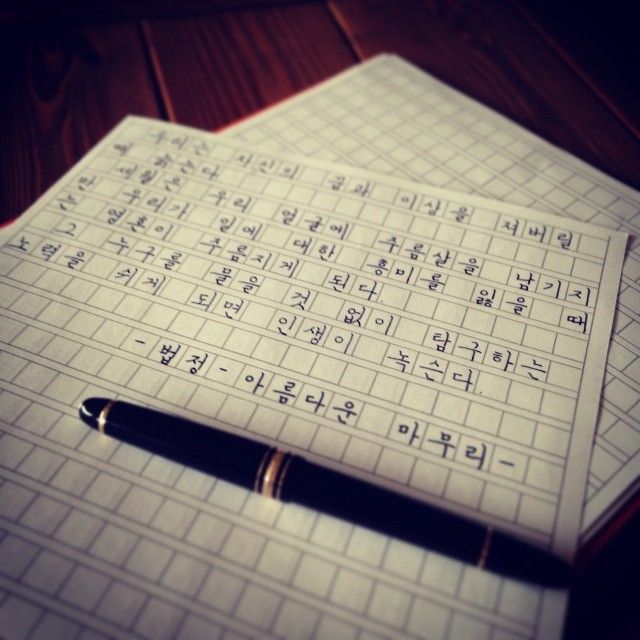 우리는 자신의 꿈과 이상을 저버릴
때 늙는다.
세월은 우리 얼굴에 주름살을 남기지
만 우리가 일에 대한 흥미를 잃을 때
는 영혼이 주름지게 된다.
그 누구를 물을 것 없이 탐구하는
노력을 쉬게 되면 인생이 녹슨다.
-법정-아름다운 마무리-